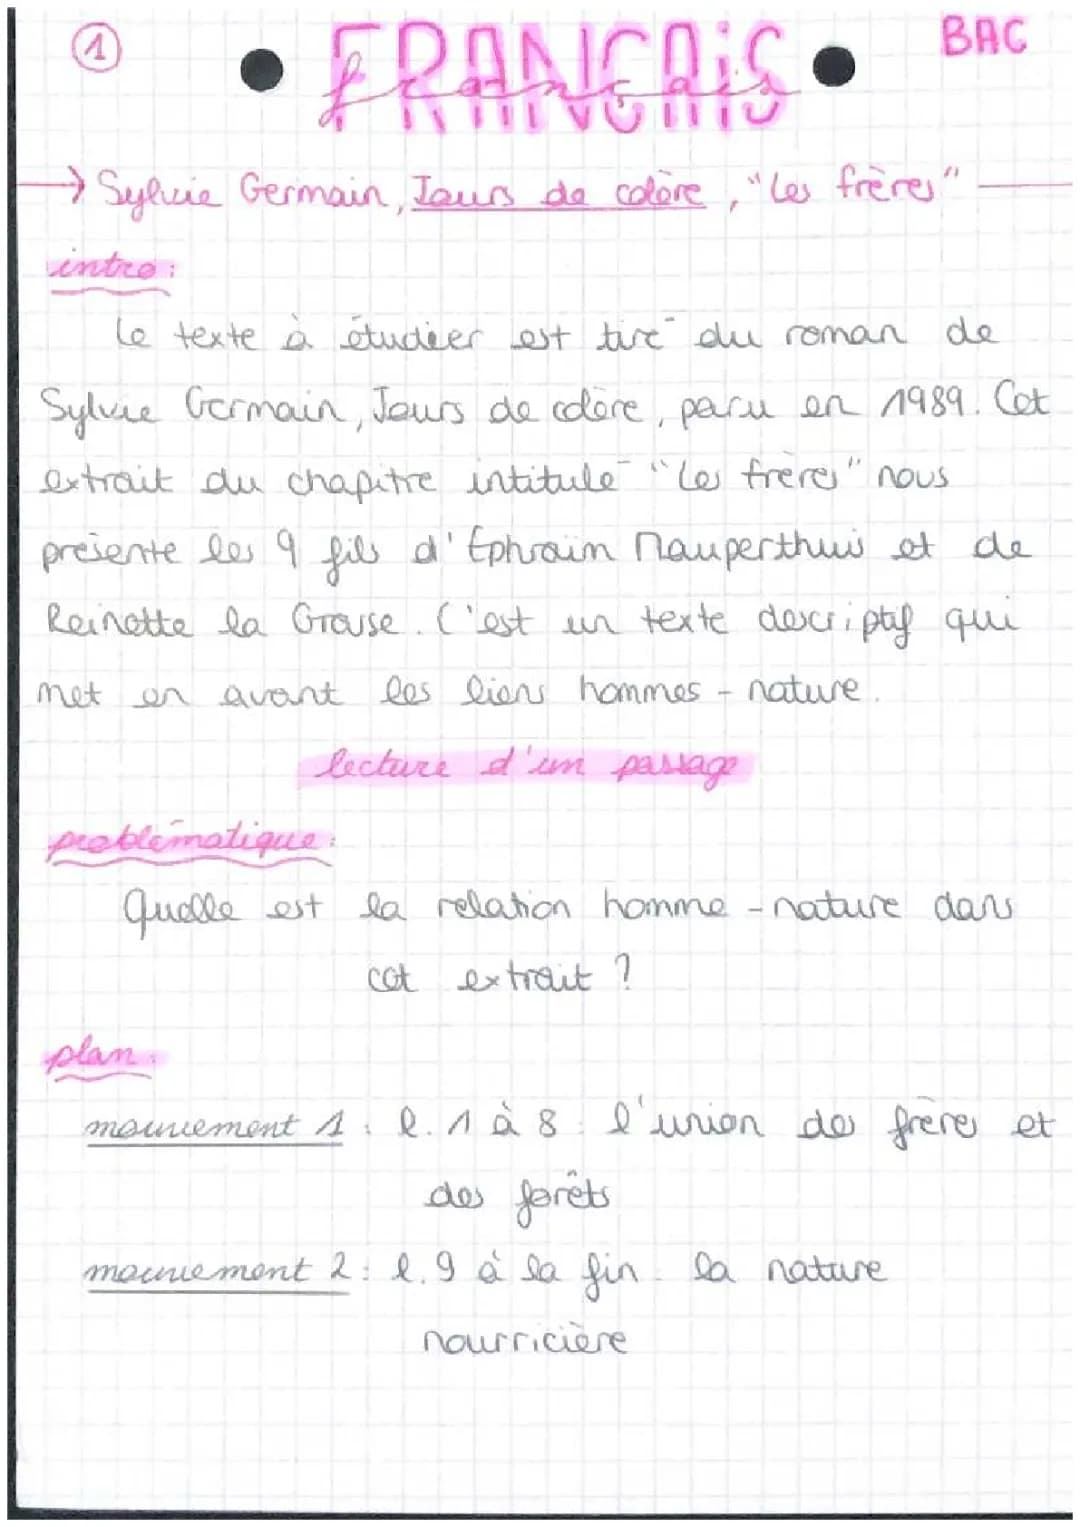 1
BAC
FRANÇAIS
français
→ Sylvie Germain, Jours de colère, "Les frères"
intro :
Le texte à étudier est tiré du roman de
Sylvie Germain, Jours de colère, paru en 1989. Cet
extrait du chapitre intitulé "Les frères" nous
présente les 9 fils d'Ephraïm Mauperthuis et de
Reinette la Grasse. C'est un texte descriptif qui
met en avant les liens hommes - nature.
lecture d'un passage
problématique :
Quelle est la relation homme - nature dans
cet extrait ?
plan :
mouvement 1 : l. 1 à 8 : l'union des frères et
des forêts
mouvement 2 : l. 9 à la fin : la nature
nourricière